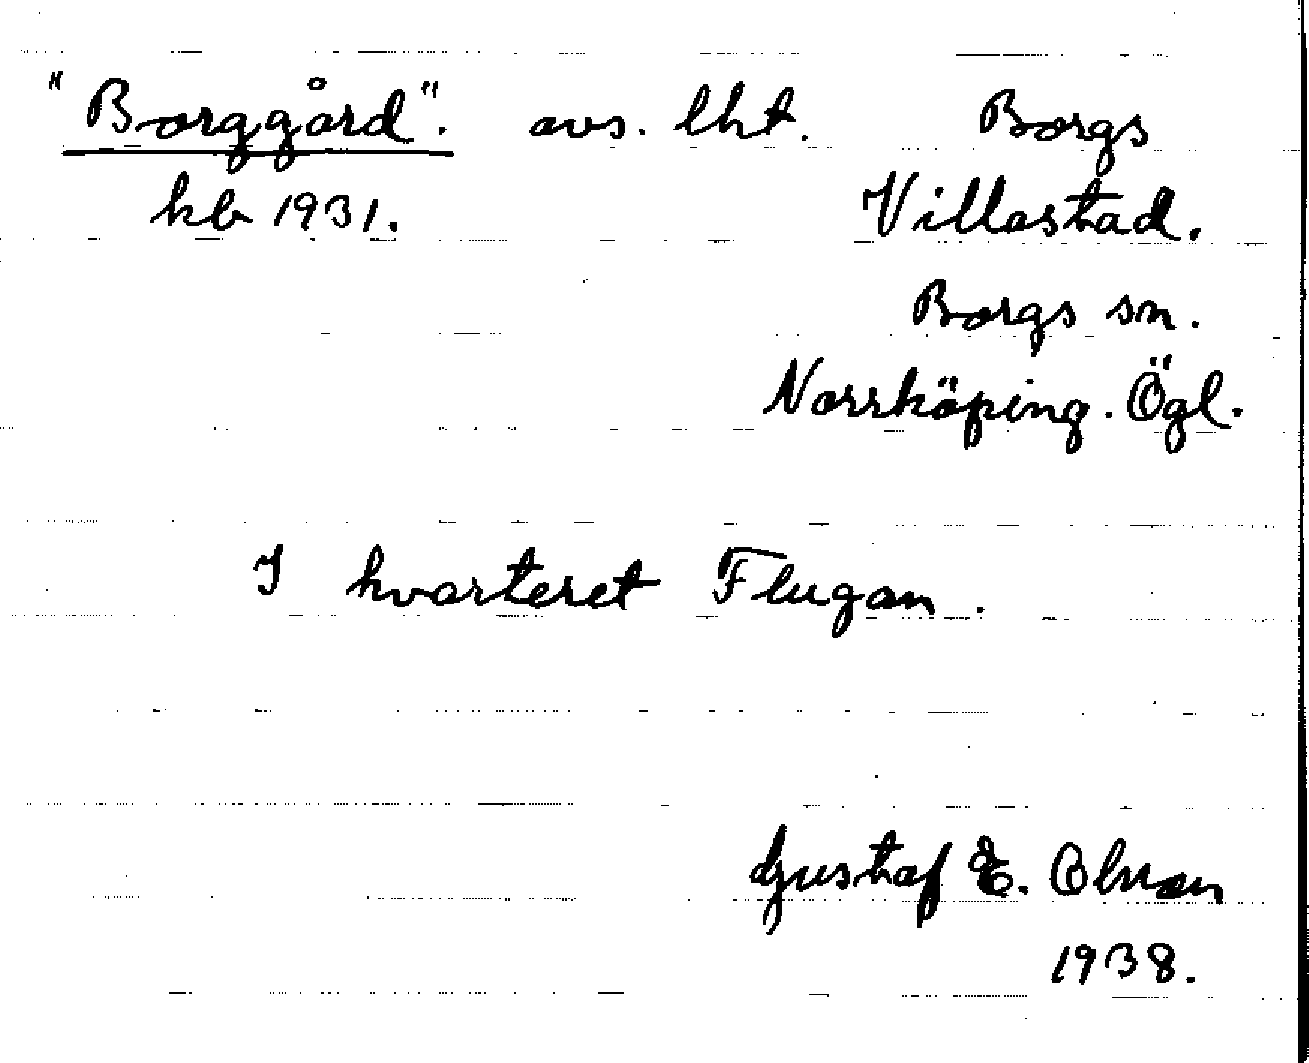 "Borggård". avs. lht. Borgs
kb 1931. Villastad.
Borgs sn.
Norrköping. Ögl.
I kvarteret Flugan.
Gustaf E. Olson
1938.